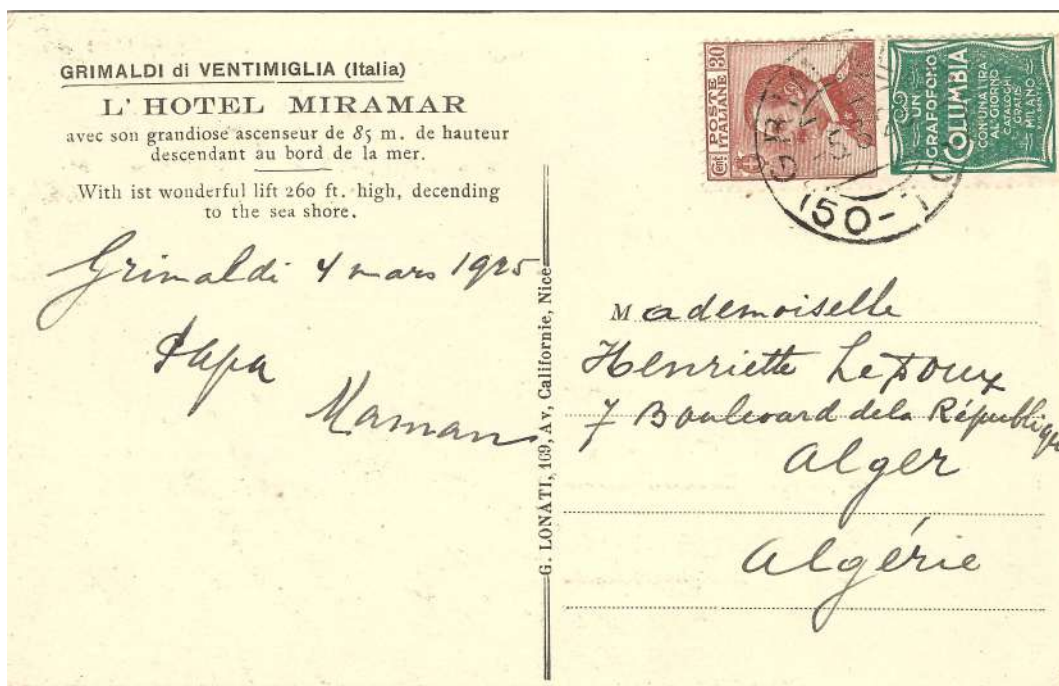 GRIMALDI di VENTIMIGLIA (Italia)
L' HOTEL MIRAMAR
avec son grandiose ascenseur de 85 m. de hauteur
descendant au bord de la mer.
With ist wonderful lift 260 ft. high, decending
to the sea shore.
Grimaldi 4 mars 1925
Papa
Maman
G. LONATI, 169, Av, Californie, Nice
POSTE
ITALIANE
30
Cent
UN
GRAFOFONO
COLUMBIA
CON UNA LIRA
AL GIORNO
CATALOGHI
GRATIS
MILANO
Mademoiselle
Henriette LeDoux
7 Boulevard de la République
Alger
Algérie